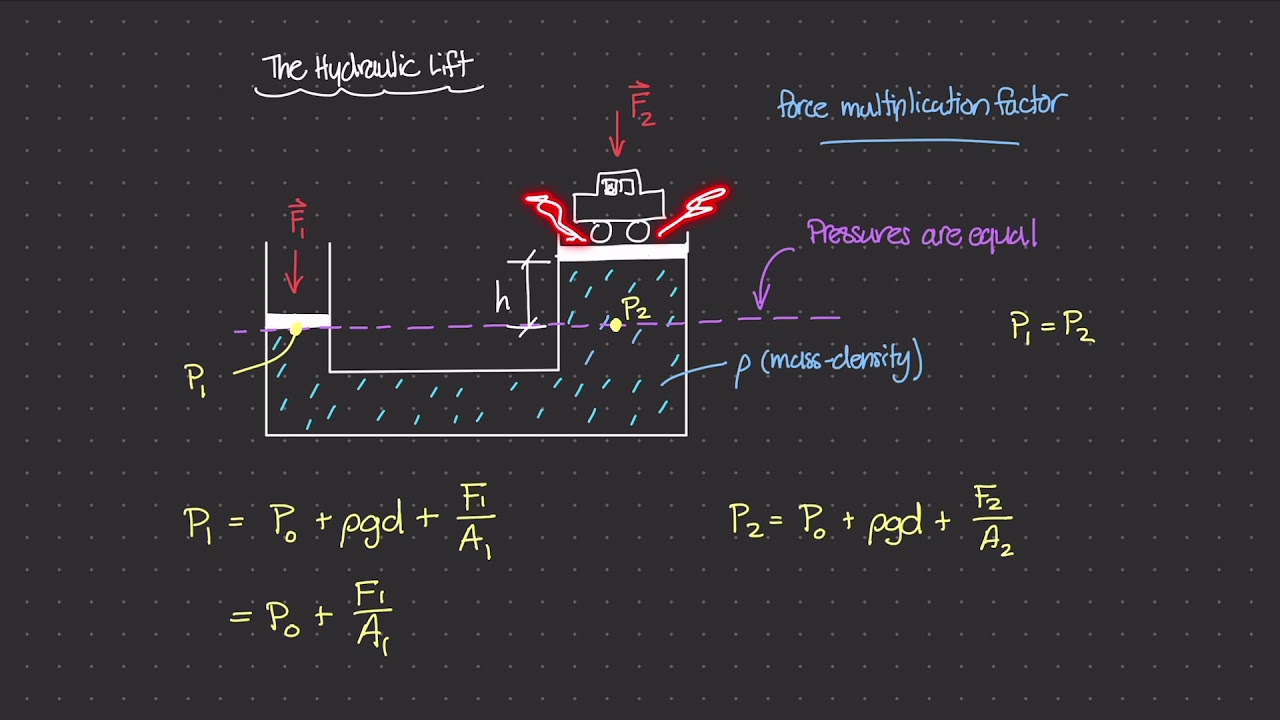 The Hydraulic Lift
force multiplication factor
F⃗₂
F⃗₁
Pressures are equal
h
P₂
P₁ = P₂
P₁
ρ (mass-density)
P₁ = P₀ + ρgd + F₁/A₁
P₂ = P₀ + ρgd + F₂/A₂
= P₀ + F₁/A₁